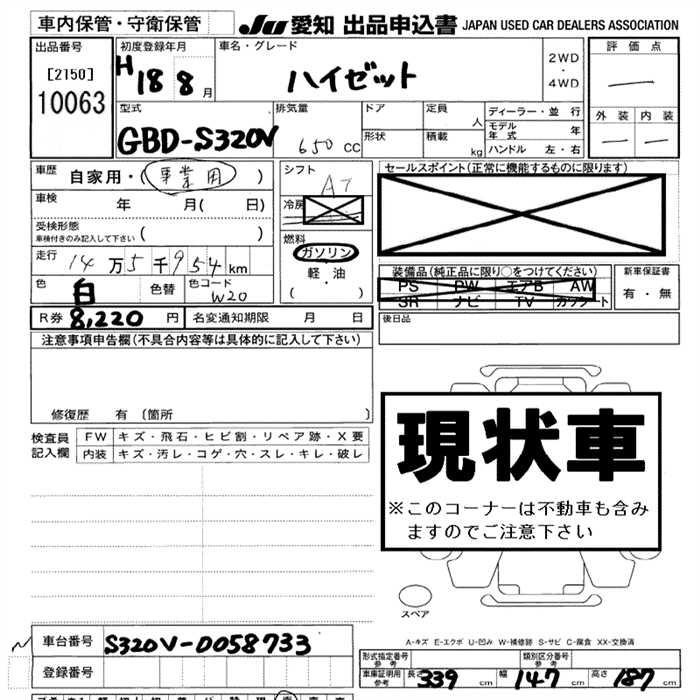 車内保管・守衛保管
JU 愛知 出品申込書 JAPAN USED CAR DEALERS ASSOCIATION
出品番号
[2150]
10063
初度登録年月
H 18 8 月
車名・グレード
ハイゼット
2WD
・
4WD
評価点
—
外装 内装
— —
型式
GBD-S320V
排気量
650 CC
ドア
形状
定員
人
積載
kg
ディーラー・並行
モデル年式 年
ハンドル 左・右
車歴
自家用・(事業用)
車検 年 月( 日)
受検形態
車検付きのみ記入して下さい ( )
走行
14万5千954km
色
白
色替
色コード
W20
シフト
AT
冷房
燃料
ガソリン
軽・油
( ・ )
セールスポイント(正常に機能するものに限ります)
装備品(純正品に限り○をつけてください)
PS PW エアB AW
SR ナビ TV カセット
新車保証書
有・無
R券 8,220 円 名変通知期限 月 日
後日品
注意事項申告欄(不具合内容等は具体的に記入して下さい)
修復歴 有 〔箇所 〕
検査員記入欄
FW キズ・飛石・ヒビ割・リペア跡・X要
内装 キズ・汚レ・コゲ・穴・スレ・キレ・破レ
現状車
※このコーナーは不動車も含み
ますのでご注意下さい
スペア
A-キズ E-エクボ U-凹み W-補修跡 S-サビ C-腐食 XX-交換済
車台番号 S320V-0058733
登録番号
形式指定番号
参考
類別区分番号
参考
車庫証明用
参考
長さ 339 cm 幅 147 cm 高さ 187 cm